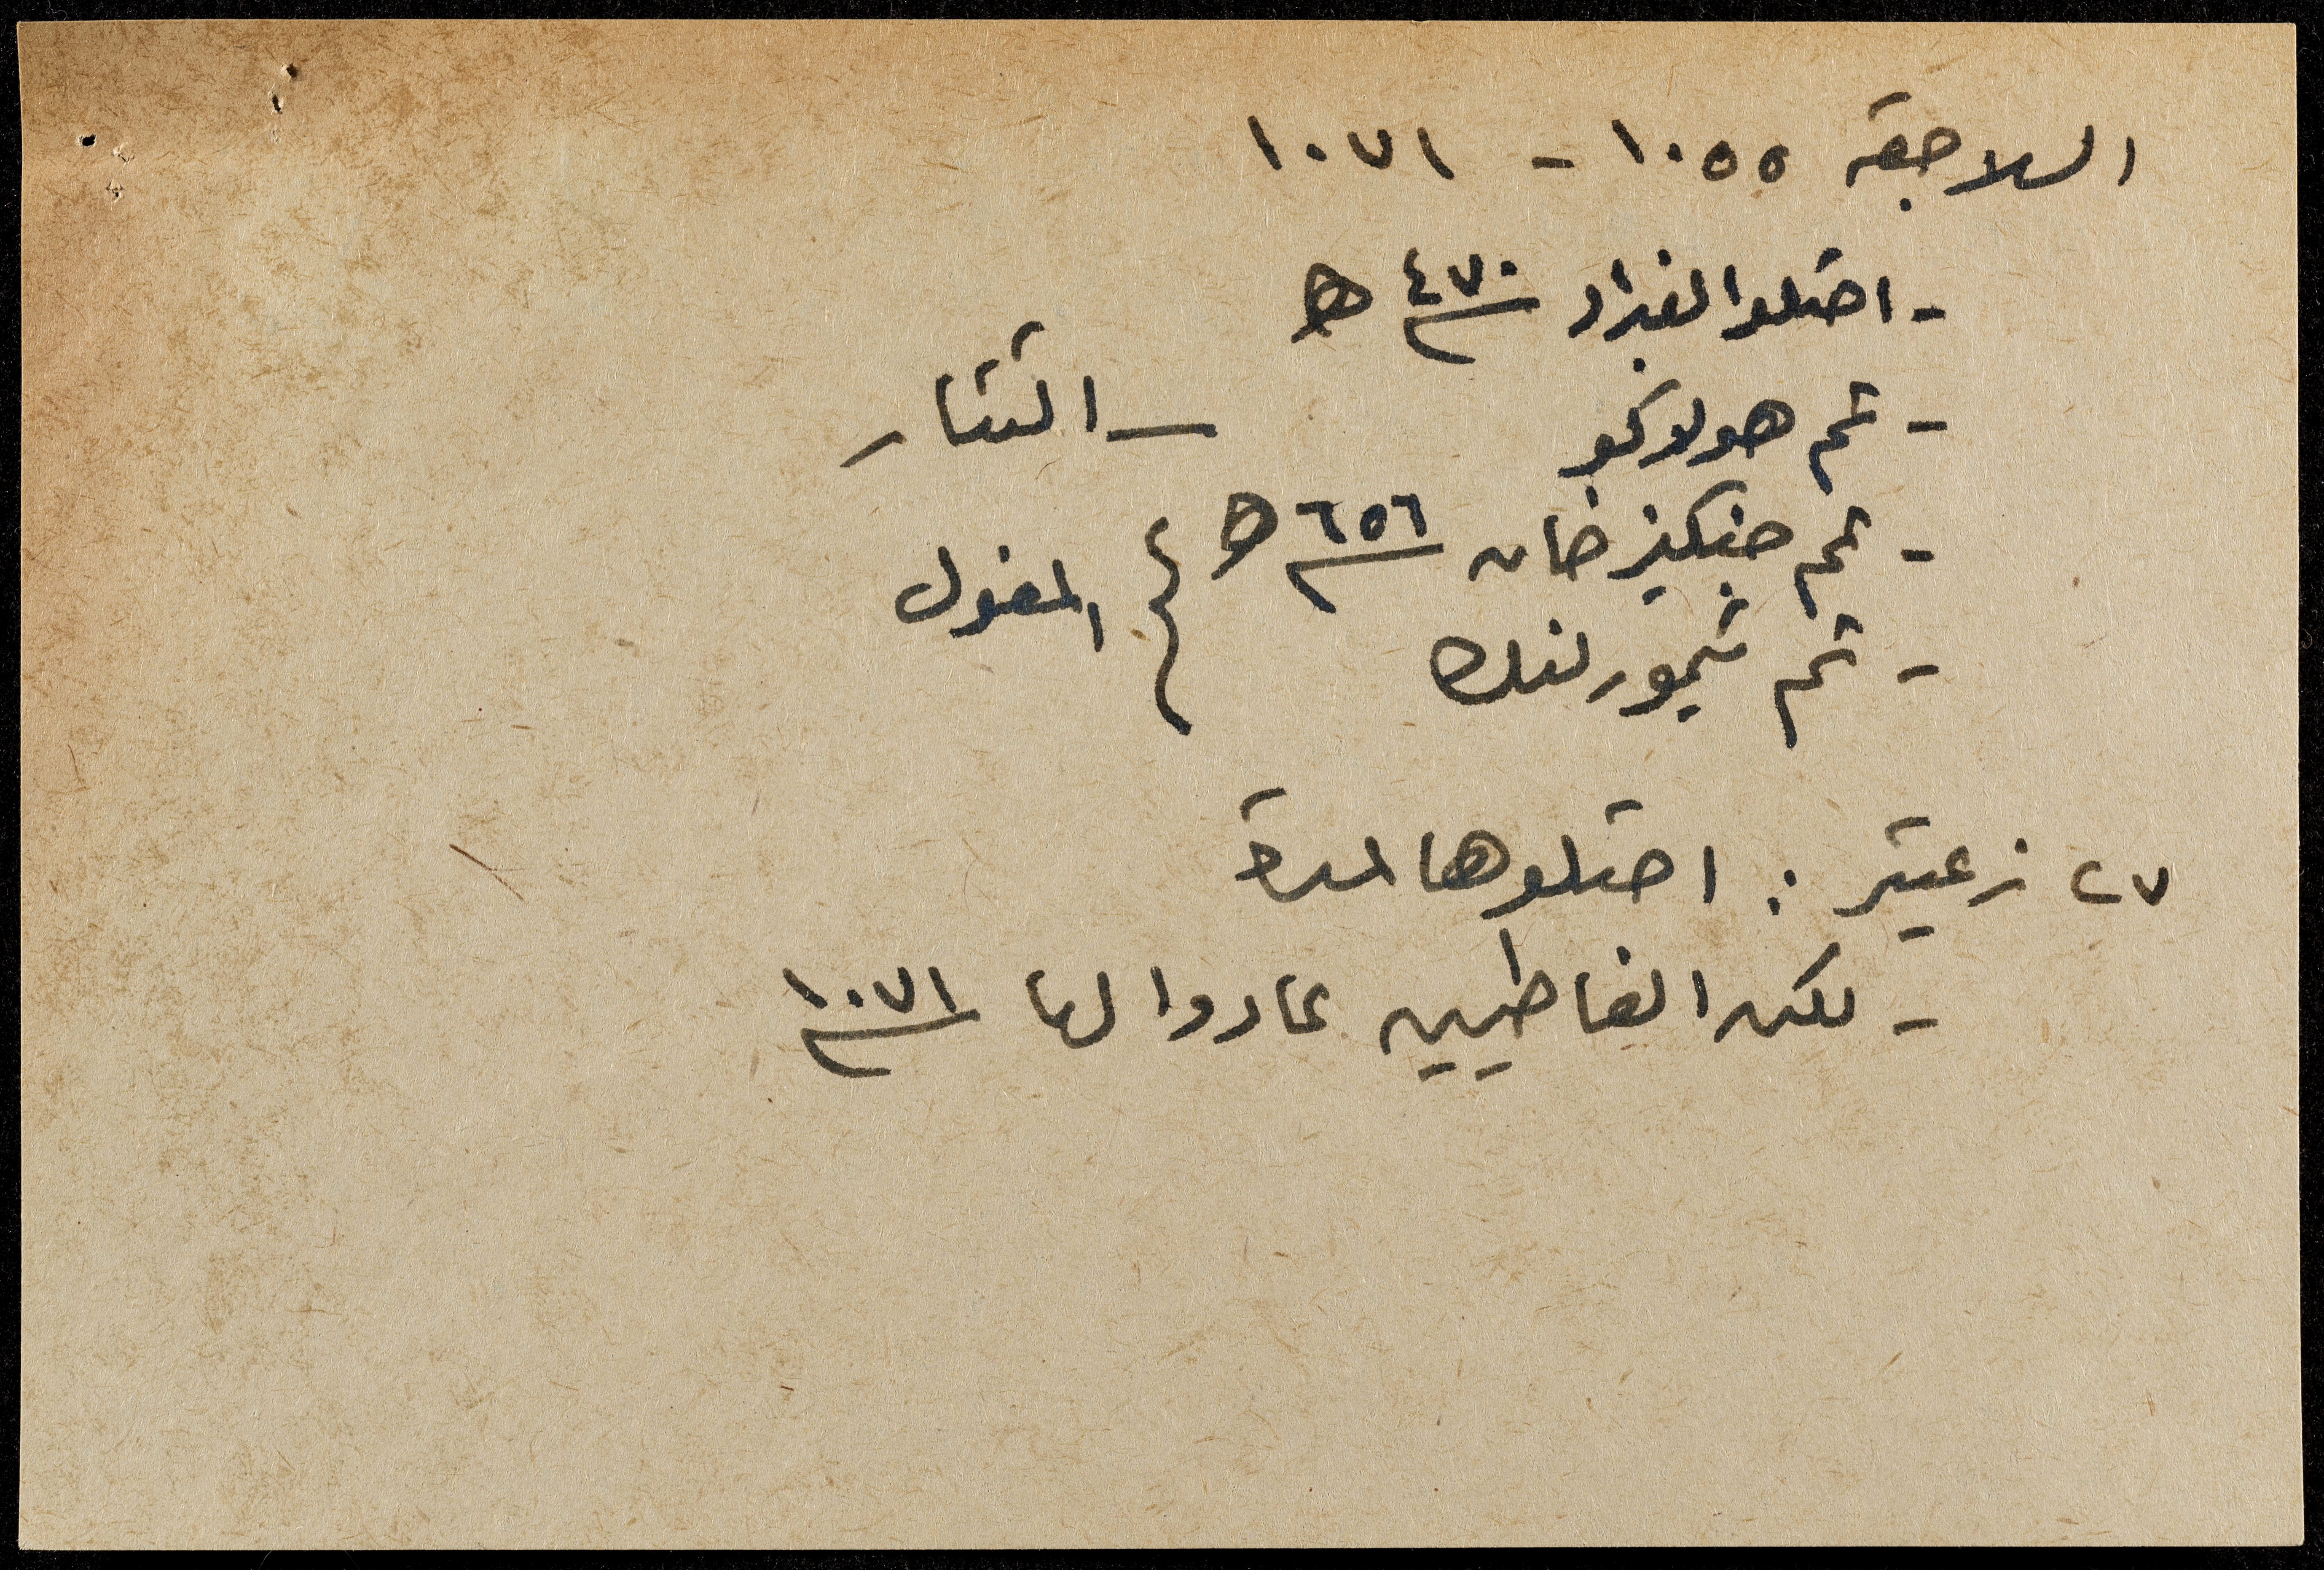 السلاجقة ١٠٥٥ - ١٠٧١
- احتلوا بغداد ٤٧٠ هـ
- ثم هولاكو — التتار
- ثم جنكيز خان ٦٥٦ هـ } المغول
- ثم تيمورلنك
٢٧ زعيتر : احتلوها لمدة
- لكن الفاطميين عادوا لها ١٠٧١